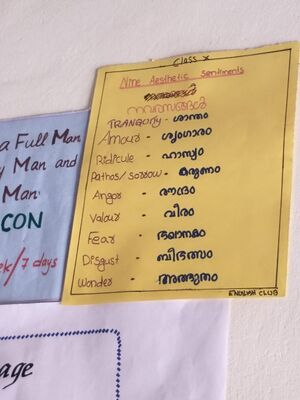 Class X
Nine Aesthetic Sentiments
നവരസങ്ങൾ
TRANQUITY - ശാന്തം
Amour - ശൃംഗാരം
Ridicule - ഹാസ്യം
Pathos/sorrow - കരുണം
Anger - രൗദ്രം
Valour - വീരം
Fear - ഭയാനകം
Disgust - ബീഭത്സം
Wonder - അത്ഭുതം
ENGLISH CLUB
a Full Man
y Man and
Man
CON
/7 days
age